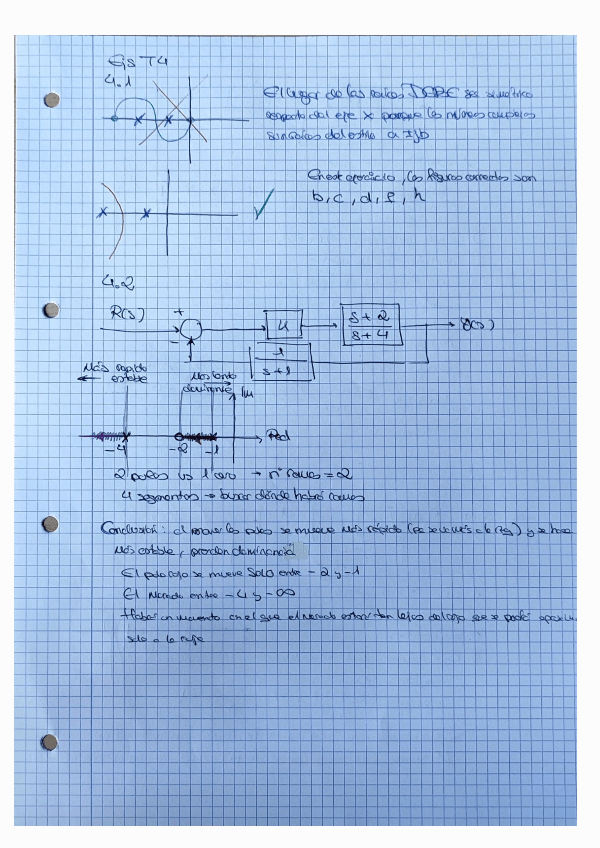 Ejs T4
4.1
El lugar de las raíces DEBE ser simétrico
respecto del eje x porque los números complejos
son raíces del estilo a ± jb
En est ejercicio, las figuras correctas son
b, c, d, f, h
4.2
R(s) + - K s + 2 / s + 4 Y(s)
1 / s + 1
Más rápido
estable
Más lento
dominante
Im
-4 -2 -1 Real
2 polos vs 1 cero → nº ramas = 2
4 segmentos → buscar dónde habrá ramas
Conclusión: al mover los polos se mueve más rápido (se va más a la izq) y se hace
más estable, pierden dominancia
El polo rojo se mueve SOLO entre -2 y -1
El morado entre -4 y -∞
Habrá un momento en el que el morado estará tan lejos del rojo que se podrá
solo a la